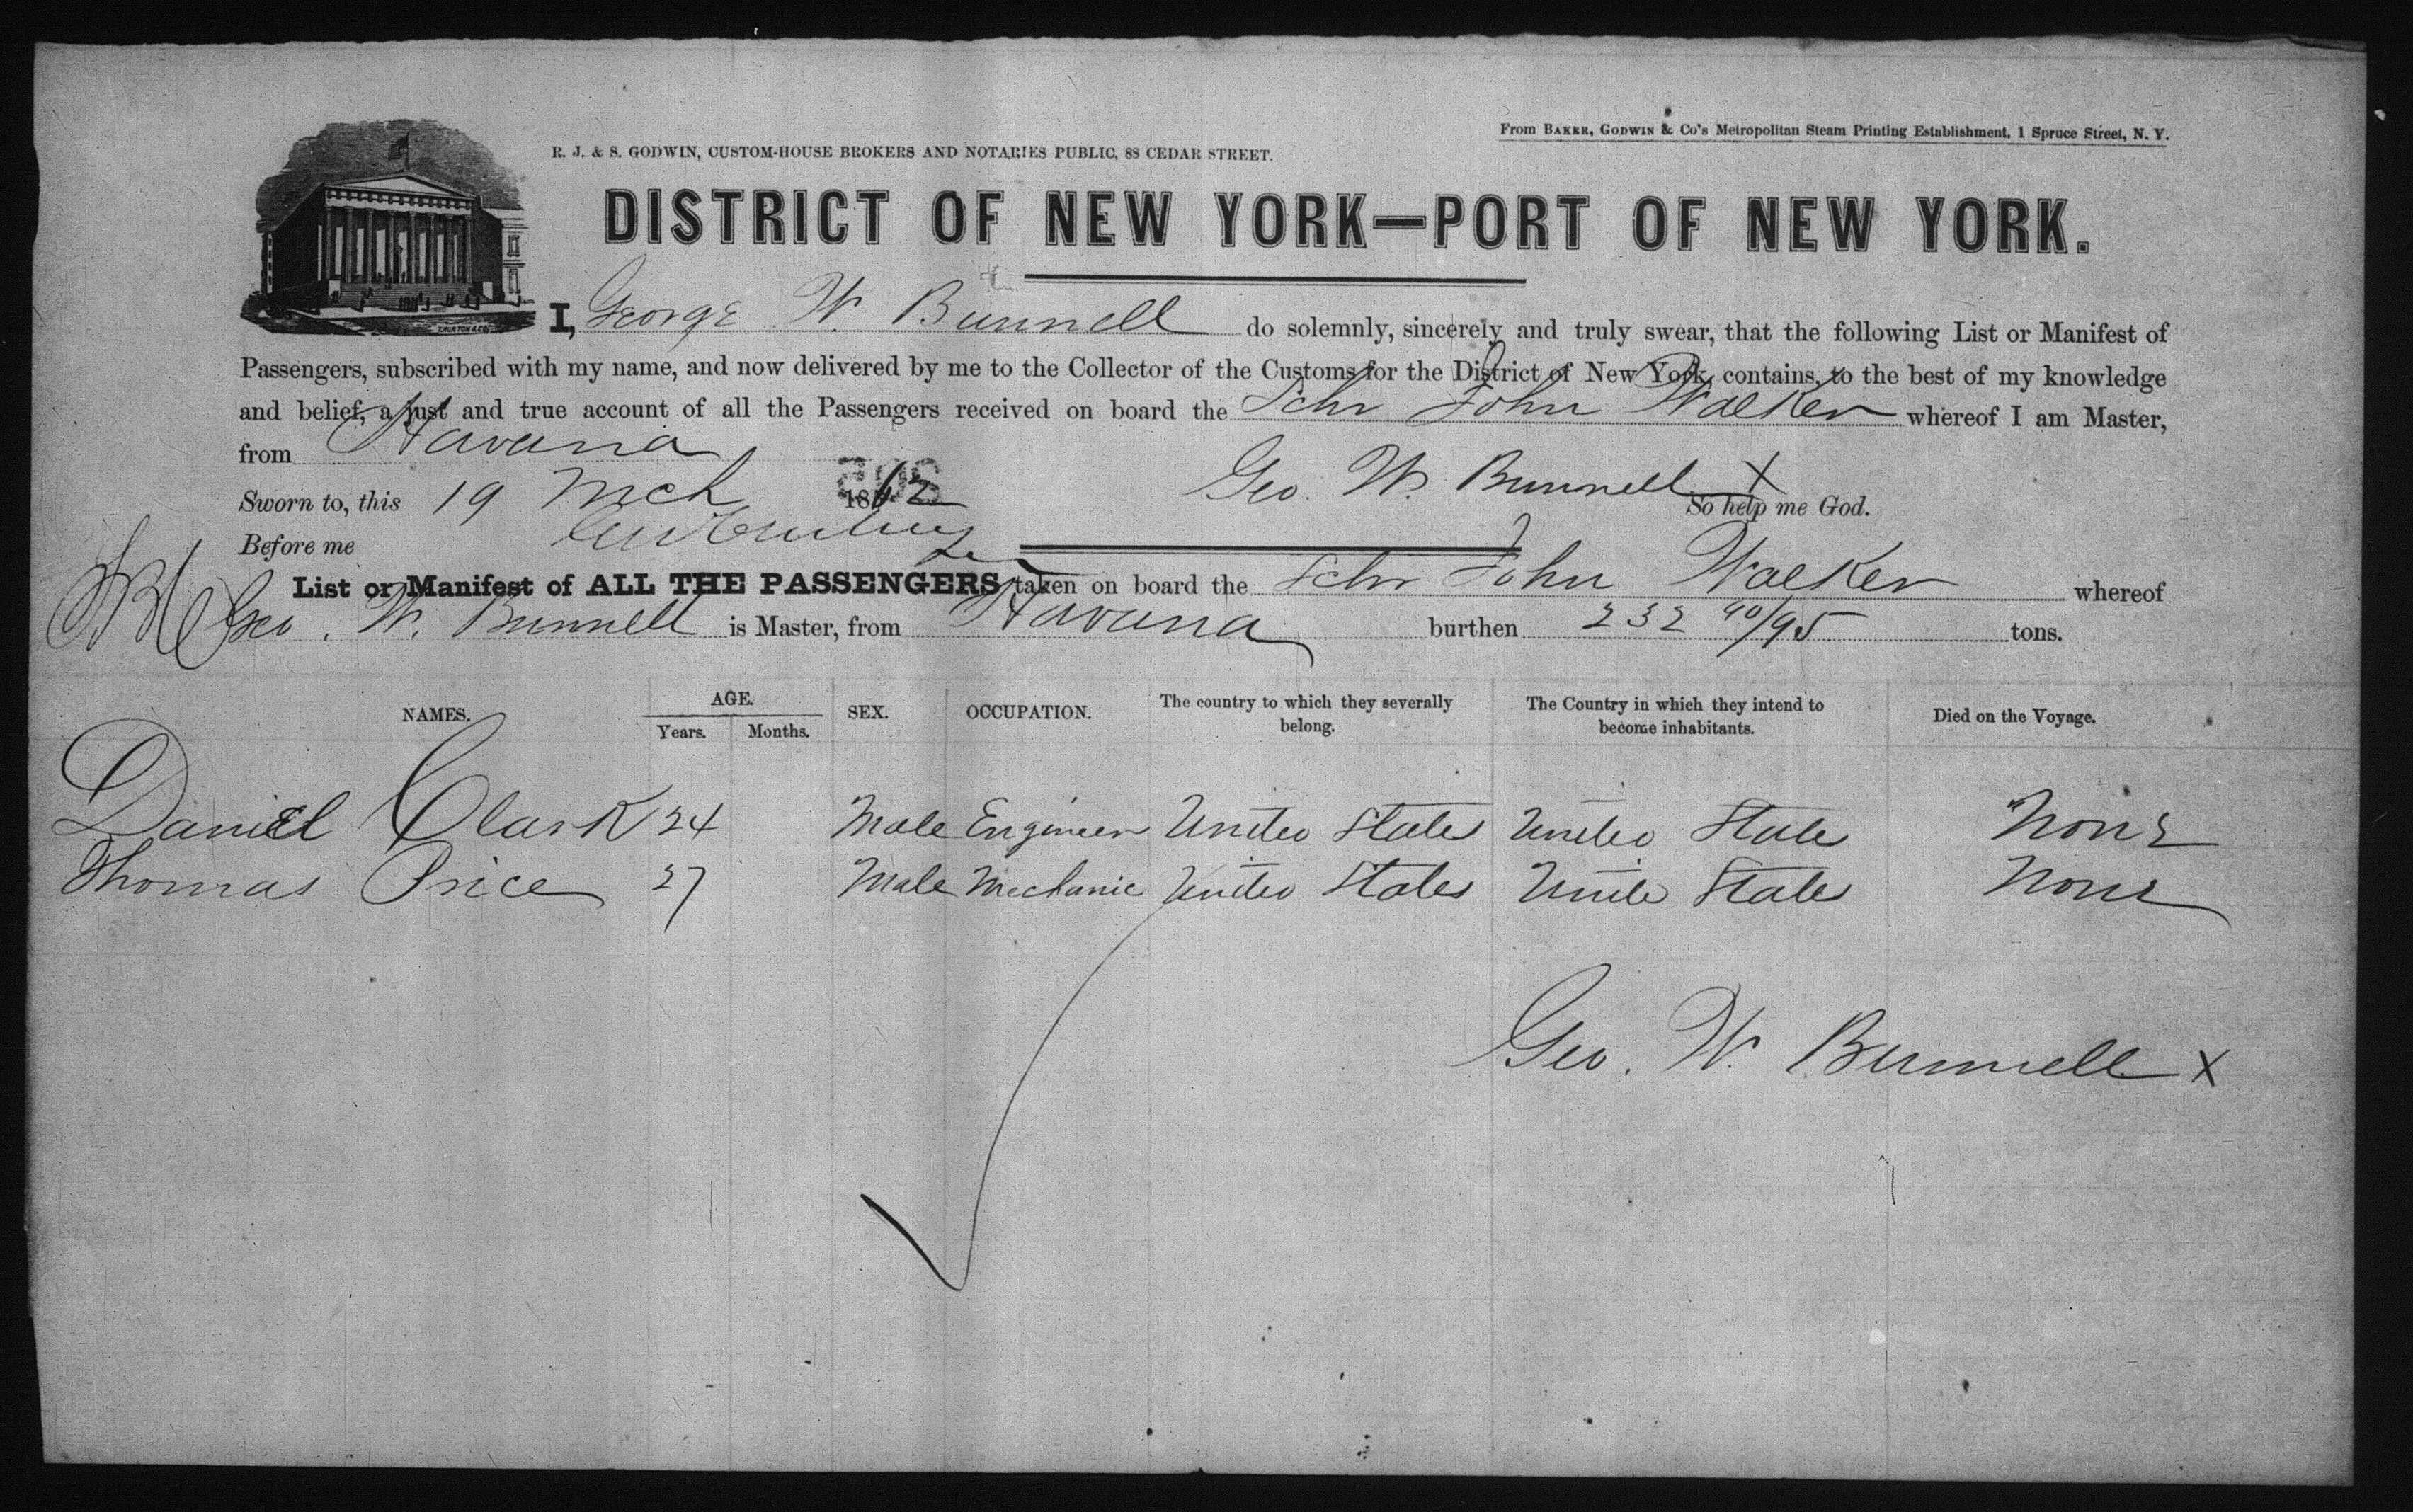 From BAKER, GODWIN & Co's Metropolitan Steam Printing Establishment, 1 Spruce Street, N. Y.
R. J. & S. GODWIN, CUSTOM-HOUSE BROKERS AND NOTARIES PUBLIC, 88 CEDAR STREET.
DISTRICT OF NEW YORK—PORT OF NEW YORK.
I, George W. Bunnell do solemnly, sincerely and truly swear, that the following List or Manifest of
Passengers, subscribed with my name, and now delivered by me to the Collector of the Customs for the District of New York, contains, to the best of my knowledge
and belief, a just and true account of all the Passengers received on board the Schr John Walker whereof I am Master,
from Havana
Sworn to, this 19 Mch 1862 Geo. W. Bunnell X So help me God.
Before me
List or Manifest of ALL THE PASSENGERS taken on board the Schr John Walker whereof
Geo. W. Bunnell is Master, from Havana burthen 232 90/95 tons.
NAMES. AGE. Years. Months. SEX. OCCUPATION. The country to which they severally belong. The Country in which they intend to become inhabitants. Died on the Voyage.
Daniel Clark 24 Male Engineer United States United State None
Thomas Price 27 Male Mechanic United States Unite States None
Geo. W. Bunnell X